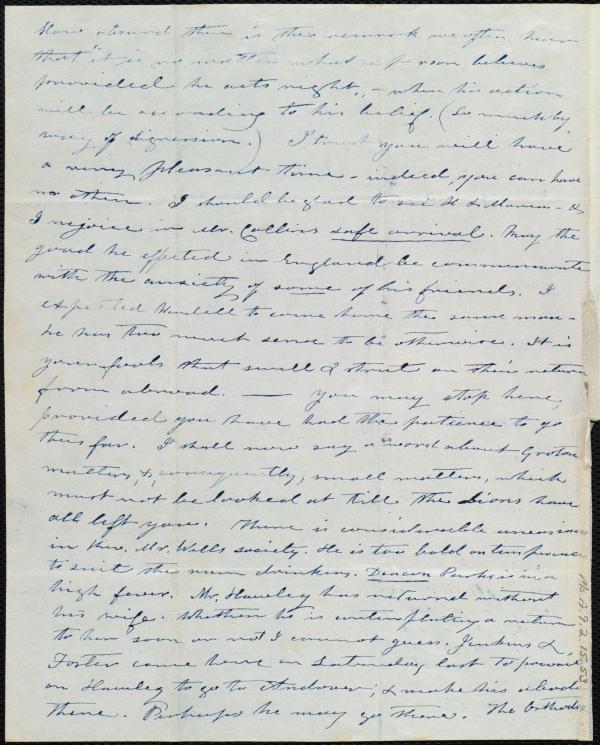 How absurd then is the remark we often hear
that "it is no matter what a person believes
provided he acts right, - when his action
will be according to his belief. (So much by
way of digression.) I trust you will have
a very pleasant time - indeed, you can have
no other. I should be glad to see
I rejoice in Mr. Collins safe arrival. May the
good he effected in England be commensurate
with the anxiety of some of his friends. I
expected Wendell to come home the same man -
he has too much sense to be otherwise. It is
your fools that swell & strut on their return
from abroad. — You may stop here,
provided you have had the patience to go
thus far. I shall now say a word about Groton
matters, &, consequently, small matters, which
must not be looked at till the Lions have
all left you. There is considerable uneasiness
in the Mr. Wells society. He is too bold on temperance
to suit the rum drinkers. Deacon Parks is in a
high fever. Mr. Hawley has returned without
his wife. Whether he is contemplating a return
to her soon or not I cannot guess. Jenkins &
Foster came here on Saturday last to
on Hawley to go to Andover, & make his abode
there. Perhaps he may go there. The Orthodox
Ms. A. 9. 2. 15. 53